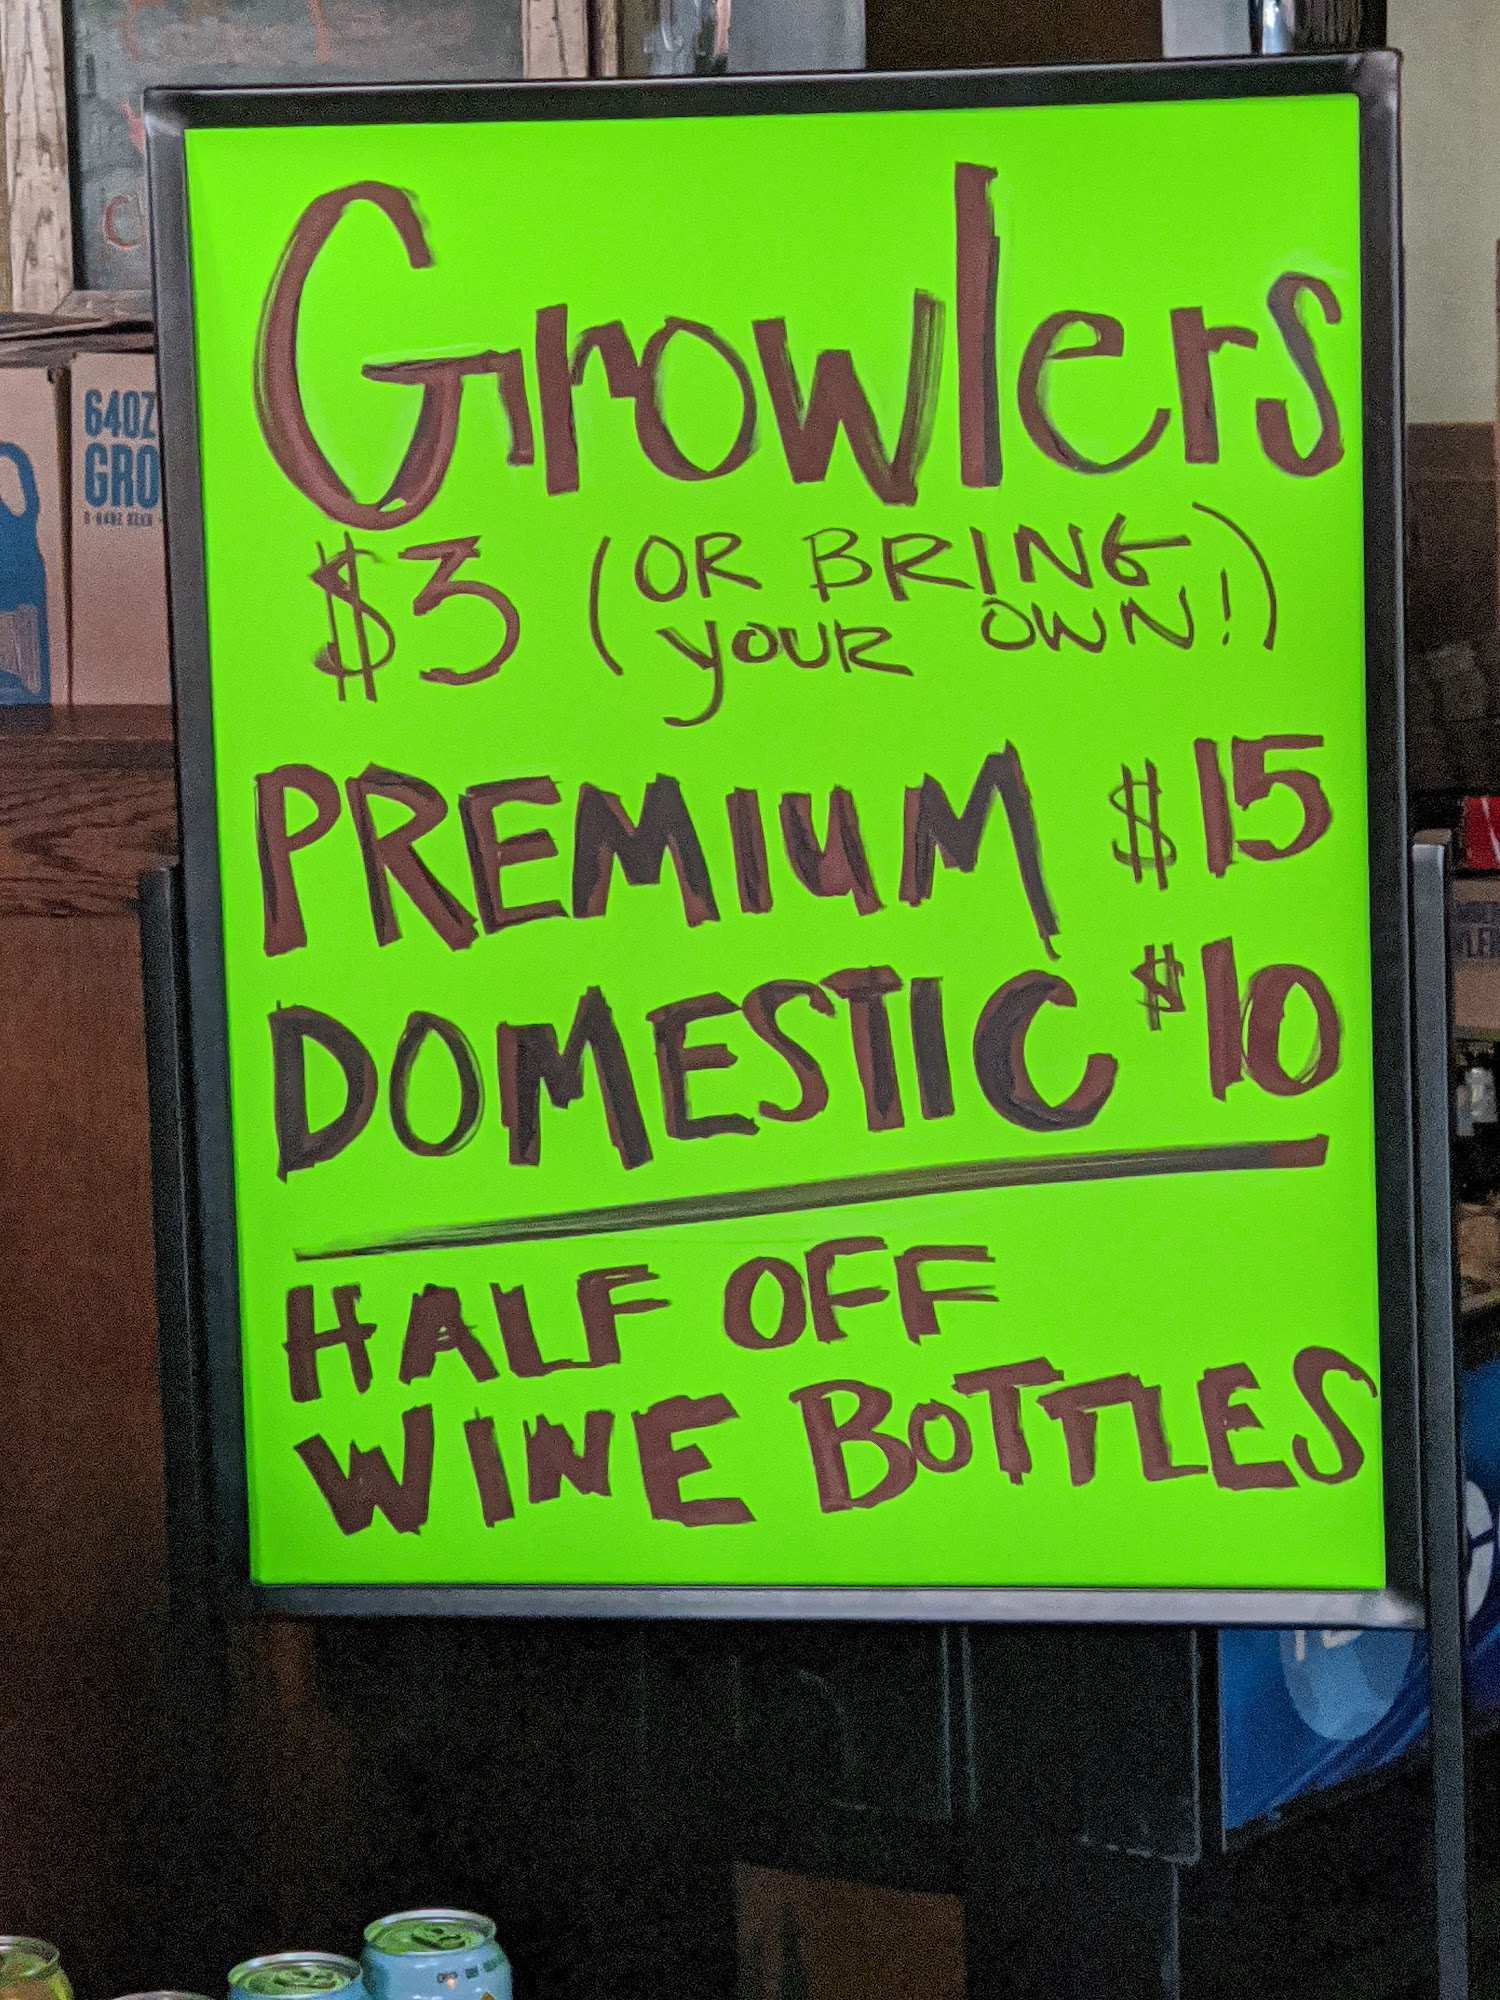 Growlers
$3 (OR BRING
yOUR OWN!)
PREMIUM $15
DOMESTIC $10
HALF OFF
WINE BOTTLES
64OZ
GRO